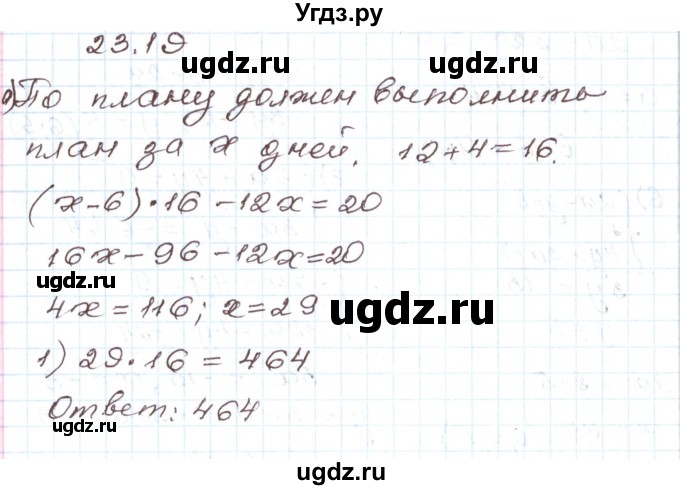 Угдз.ру
23.19
ugdz.ru ugdz.ru
а) По плану должен выполнить
план за x дней, 12+4=16.
ugdz.ru ugdz.ru
(x-6)·16-12x=20
16x-96-12x=20
ugdz.ru
4x=116; x=29
ugdz.ru
1) 29·16=464
ugdz.ru ugdz.ru
Ответ: 464
ugdz.ru